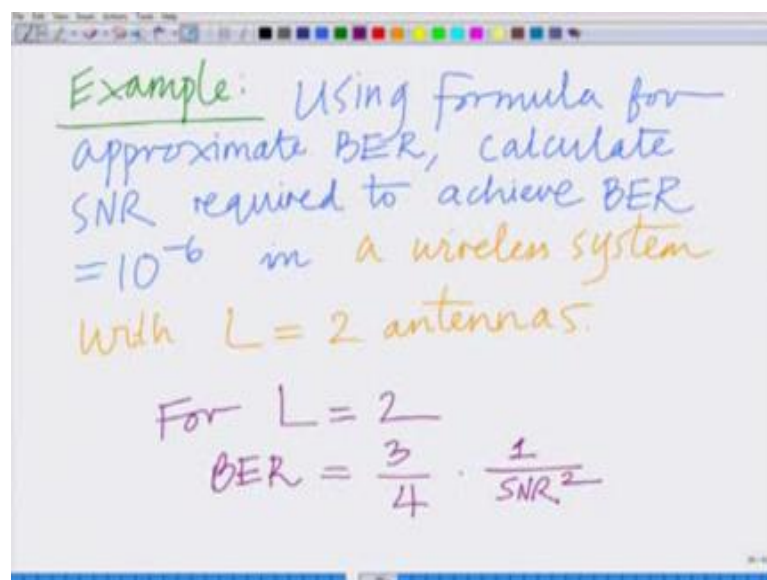 Example: Using Formula for
approximate BER, calculate
SNR required to achieve BER
= 10⁻⁶ in a wireless system
with L = 2 antennas.
For L = 2
BER = 3/4 · 1/SNR²